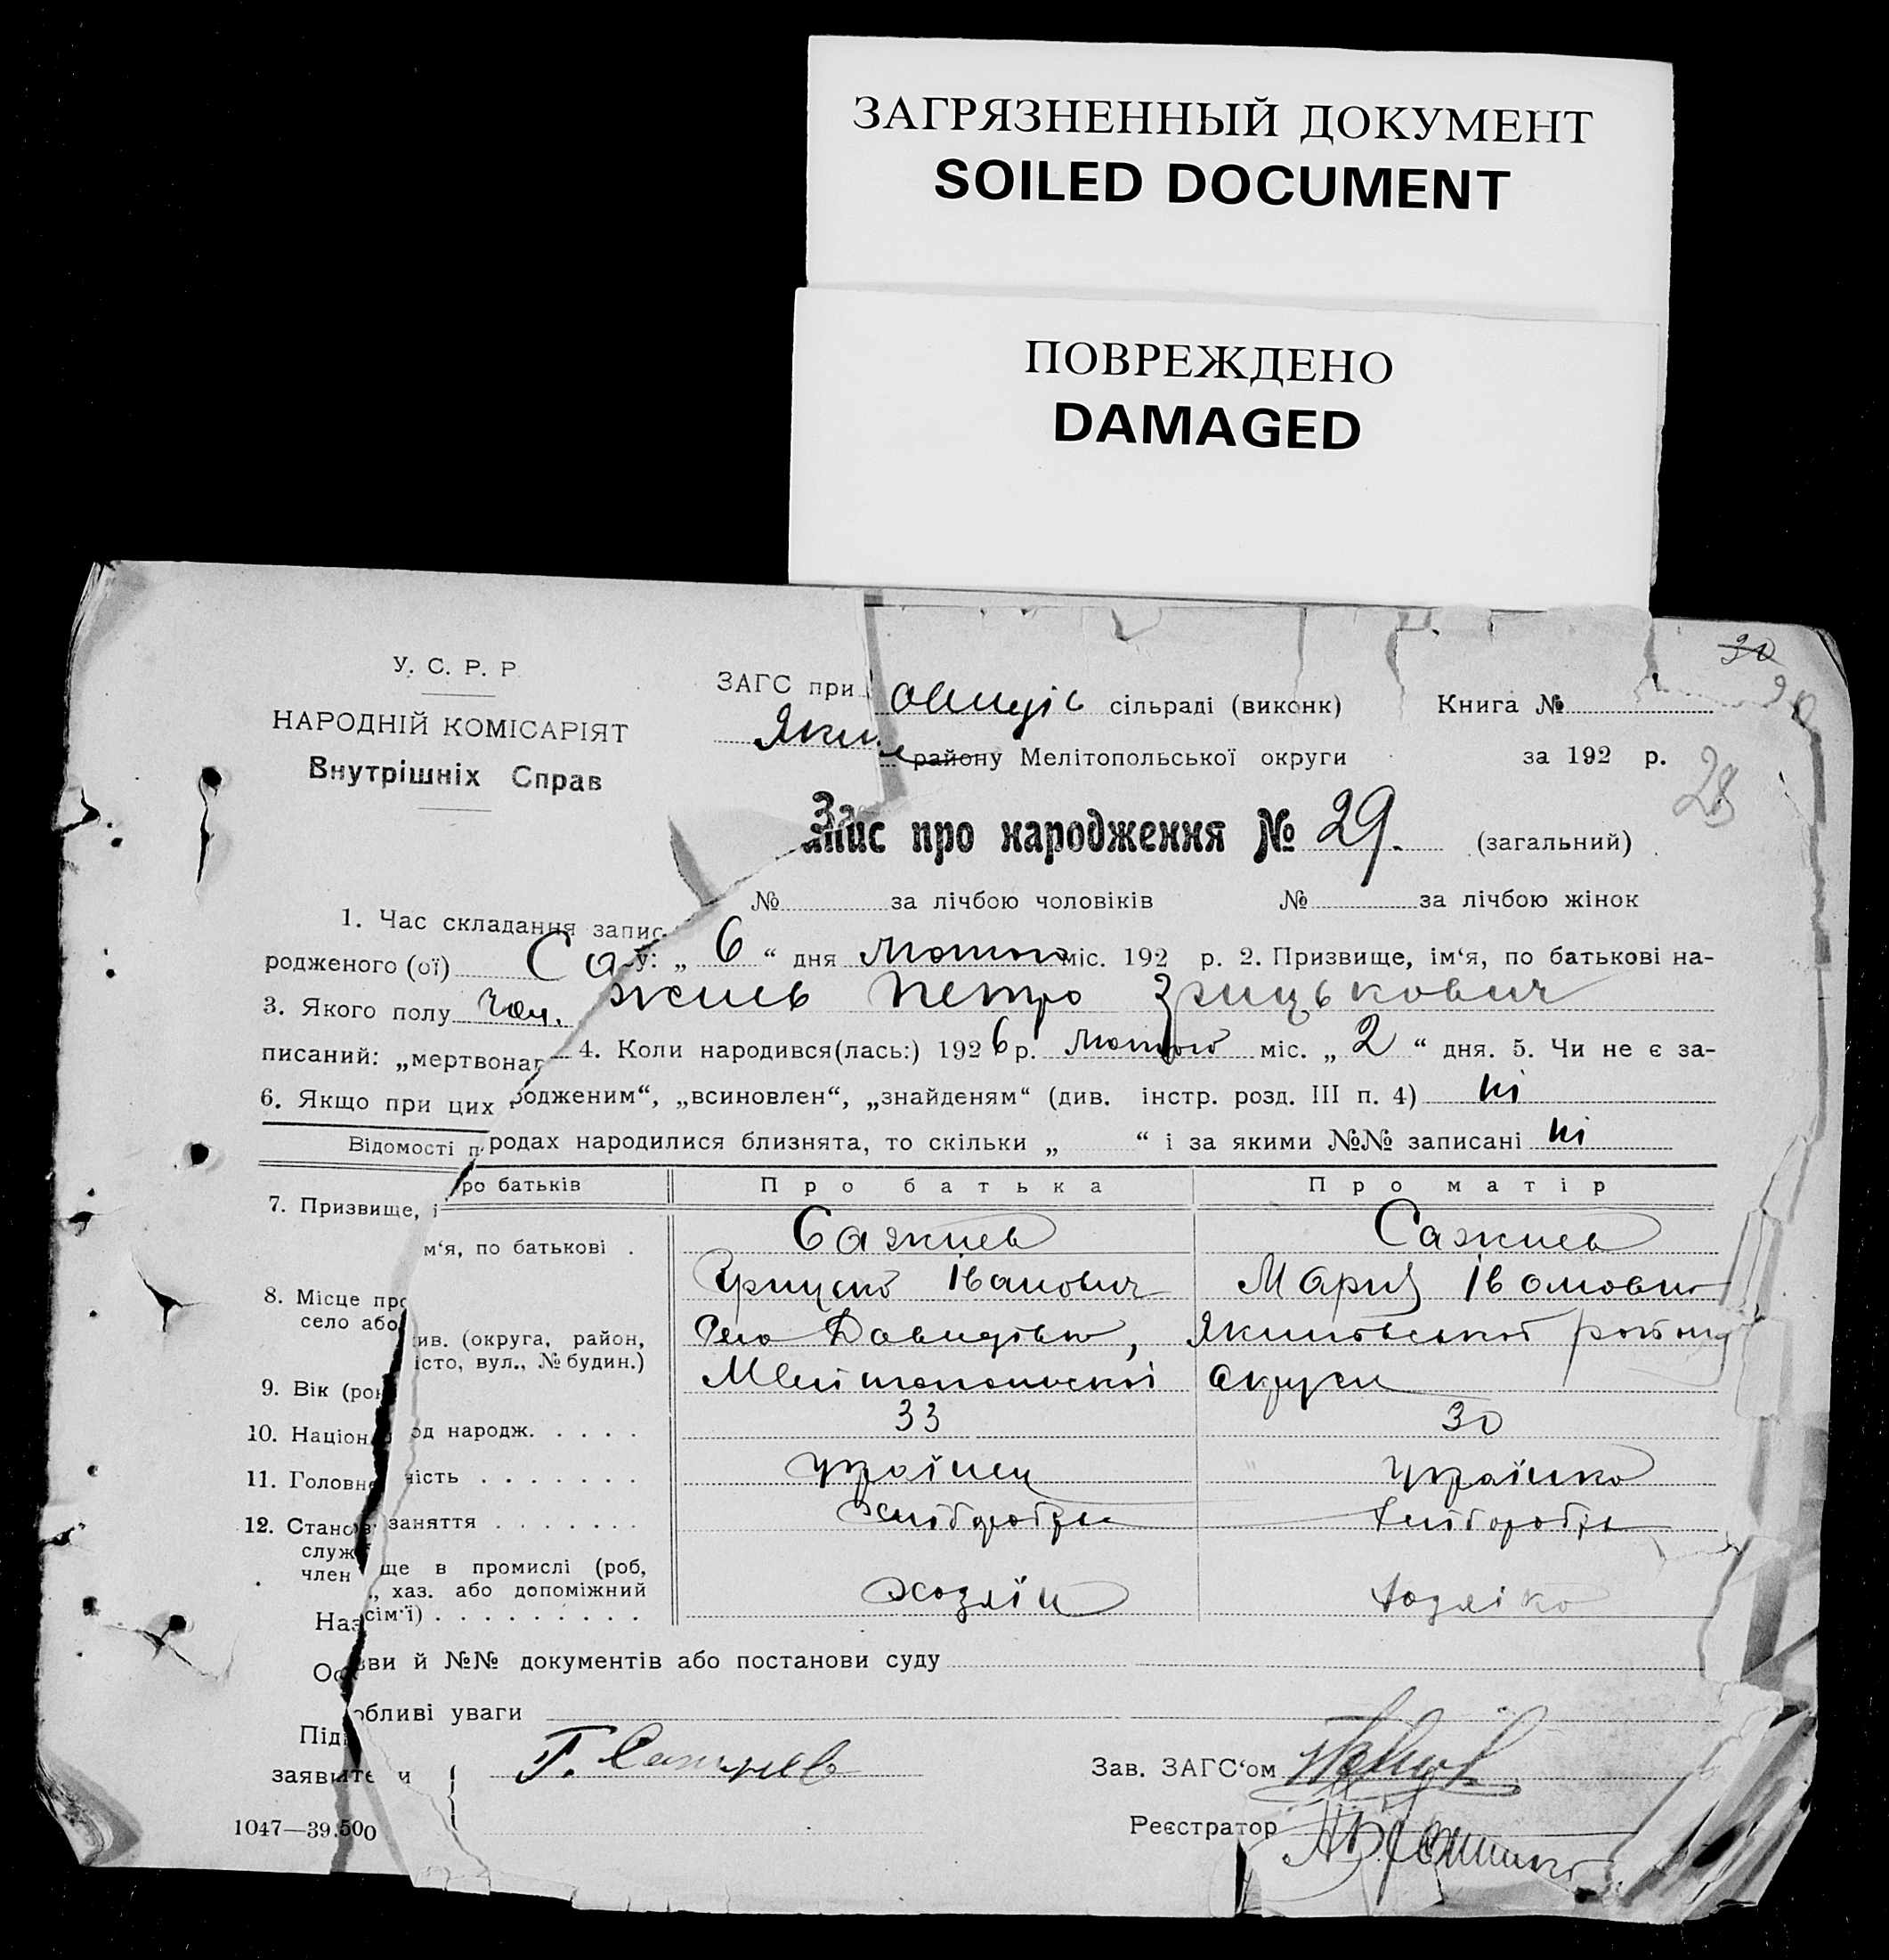 ЗАГРЯЗНЕННЫЙ ДОКУМЕНТ
SOILED DOCUMENT
ПОВРЕЖДЕНО
DAMAGED
30
У. С. Р. Р.
НАРОДНІЙ КОМІСАРІЯТ
Внутрішніх Справ
ЗАГС при сільраді (виконк) Книга №
району Мелітопольської округи за 192 р.
28
Запис про народження № 29. (загальний)
№ за лічбою чоловіків № за лічбою жінок
1. Час складання запису: „ 6 “ дня лютого міс. 192 р. 2. Призвище, ім‘я, по батькові на-
родженого (ої) Сажнев Петро Грицькович
3. Якого полу чол. 4. Коли народився(лась:) 1926 р. лютого міс. „ 2 “ дня. 5. Чи не є за-
писаний: „мертвонародженим“, „всиновлен“, „знайденям“ (див. інстр. розд. III п. 4) ні
6. Якщо при цих родах народилися близнята, то скільки „ “ і за якими №№ записані ні
Відомості про батьків Про батька Про матір
7. Призвище, ім‘я, по батькові . Сажнев Сажнев
Грицько Іванович Марія
8. Місце прожив. (округа, район, село або місто, вул., № будин.) Село Давидівка, Якимівського району
Мелітопольської округи
9. Вік (рок од народж. . . . . 33 30
10. Національність . . . . . . . українец українка
11. Головне заняття . . . . . . . хлібороб хлібороб
12. Становище в промислі (роб, служ „ хаз. або допоміжний член сім‘ї) . . . . . . . . . хозяїн хозяїка
Назви й №№ документів або постанови суду
Особливі уваги
Підп
заявителі и Г. Сажнев Зав. ЗАГС‘ом
Реєстратор
1047—39.500